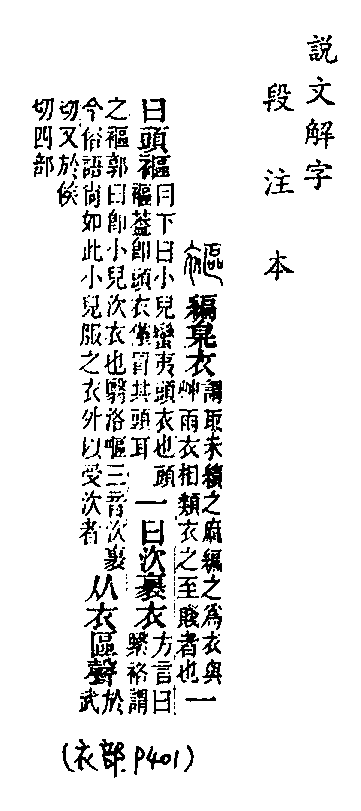 說文解字
段注本
䙔編枲衣謂取未績之麻編之爲衣與艸雨衣相類衣之至賤者也一
曰頭䙔冃下曰小兒蠻夷頭衣也頭䙔葢卽頭衣僅冒其頭耳一曰次裹衣方言曰繄袼謂
之䙔郭曰卽小兒次衣也翳洛嘔三音次裹今俗語尚如此小兒服之衣外以受次者从衣區聲於武
切又於侯切四部
(衣部 P401)